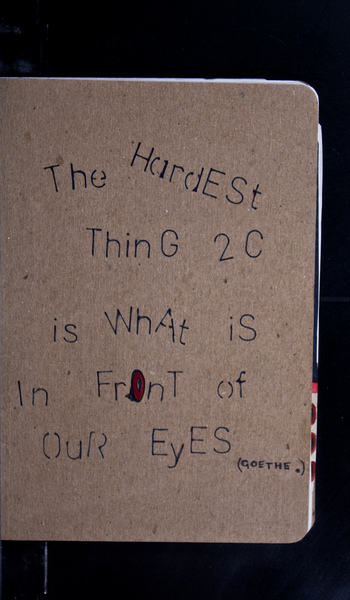 The HardESt
ThinG 2 C
is WhAt iS
In FrOnT of
OuR EyES
(GOETHE.)